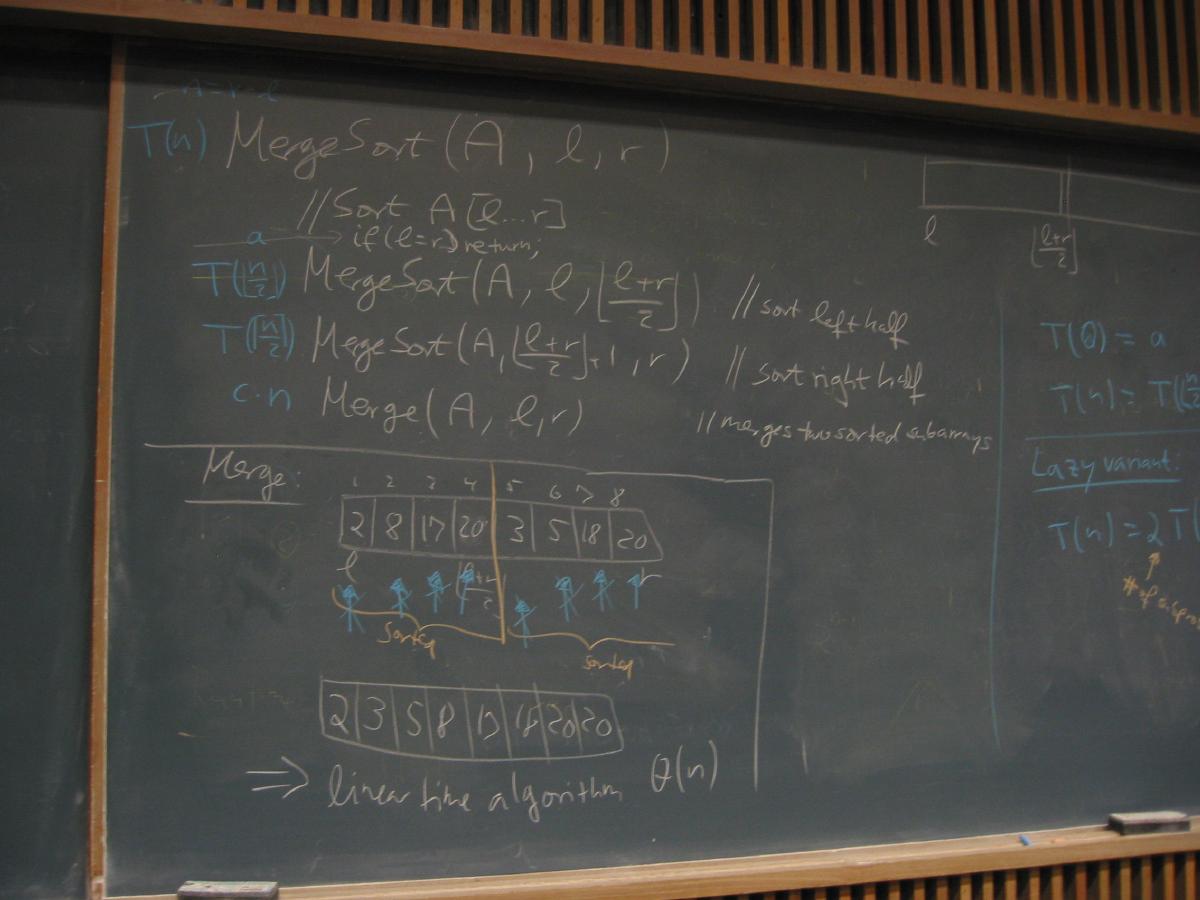 T(n) MergeSort(A, l, r)
//Sort A[l...r]
a → if(l=r) return;
T(⌊n/2⌋) MergeSort(A, l, ⌊(l+r)/2⌋) //sort left half
T(⌈n/2⌉) MergeSort(A, ⌊(l+r)/2⌋+1, r) //sort right half
c·n Merge(A, l, r) //merges two sorted subarrays
Merge:
1 2 3 4 5 6 7 8
2 8 17 20 3 5 18 20
l ⌊(l+r)/2⌋ r
sorted sorted
2 3 5 8 17 18 20 20
⇒ linear time algorithm Θ(n)
l ⌊(l+r)/2⌋
T(0) = a
T(n) = T(⌊n/2
Lazy variant:
T(n) = 2 T(
# of subpro